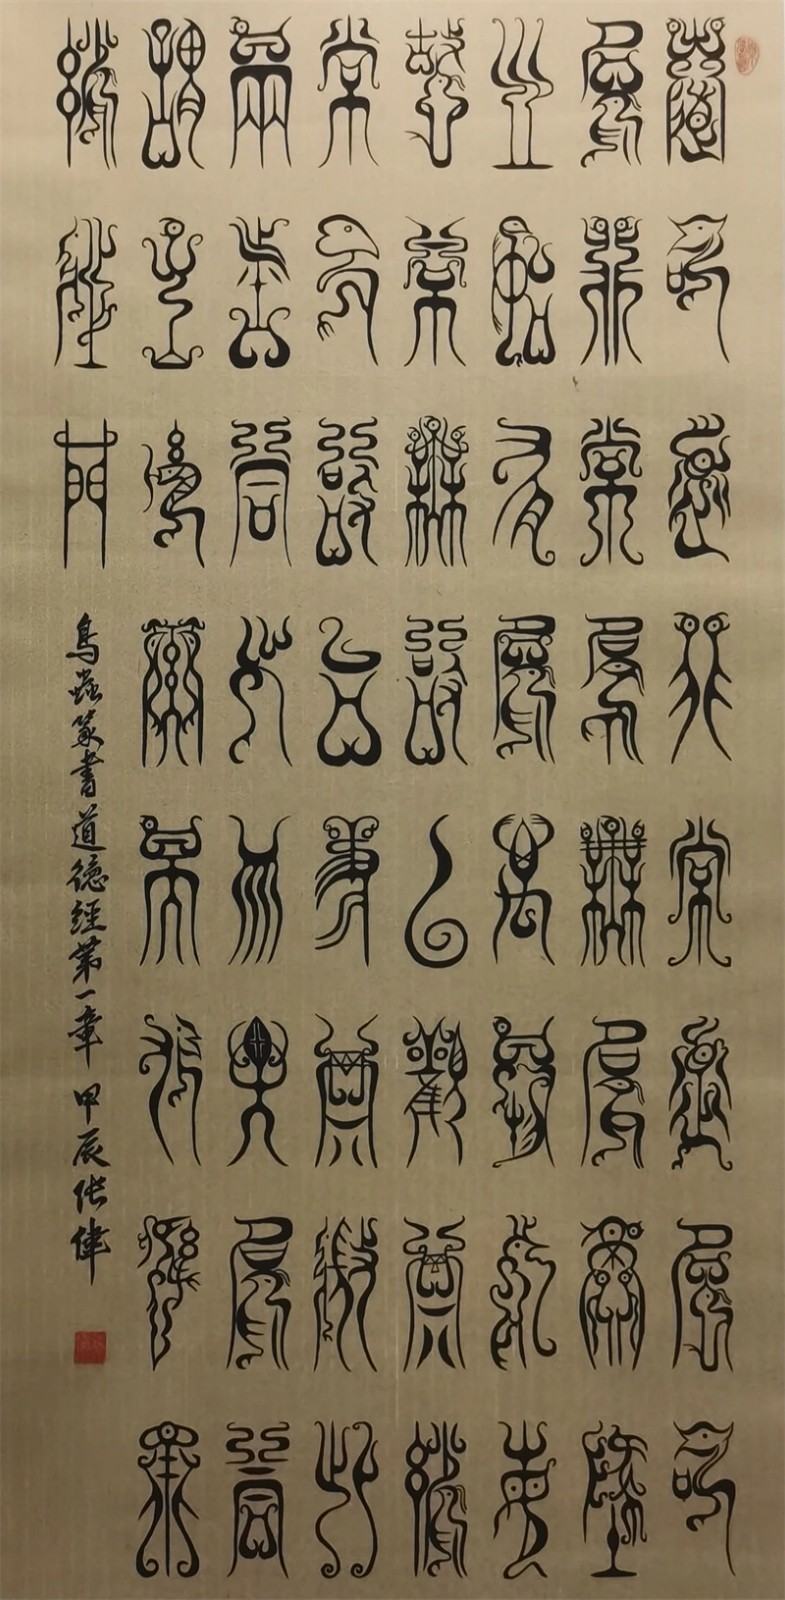 道可道非常道名可
名非常名無名天地
之始有名萬物之母
故常無欲以觀其妙
常有欲以觀其徼此
兩者同出而異名同
謂之玄玄之又玄眾
妙之門
鳥蟲篆書道德經第一章 甲辰張偉